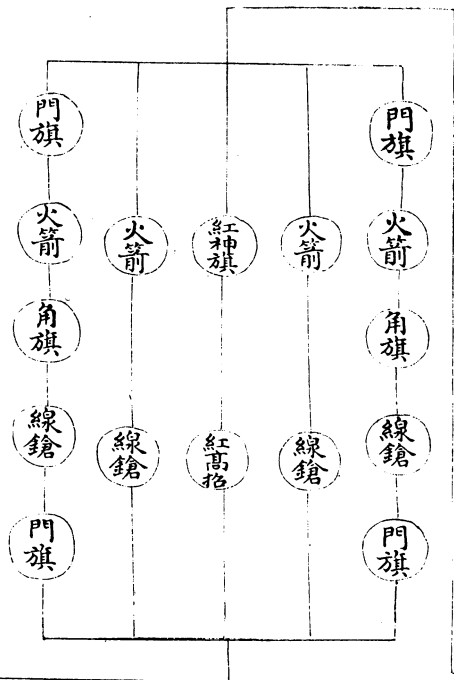 門旗
火箭
角旗
線鎗
門旗
火箭
線鎗
紅神旗
紅高招
火箭
線鎗
門旗
火箭
角旗
線鎗
門旗